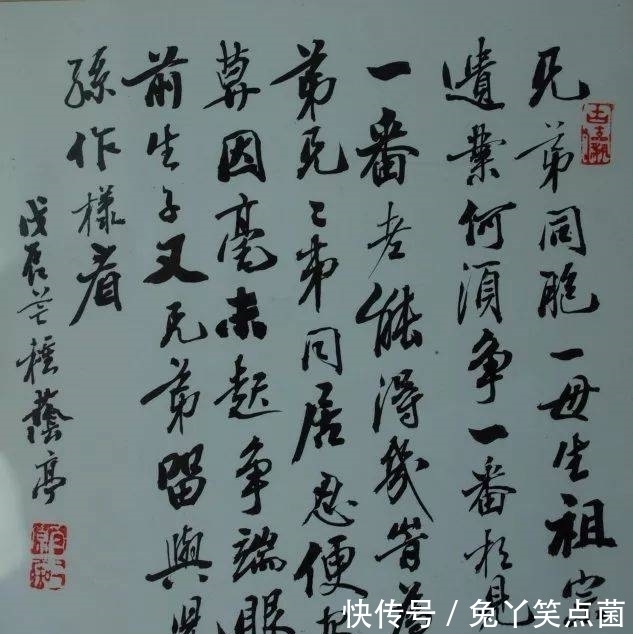 兄弟同胞一母生祖宗
遺業何須争一番相見
一番老能得幾旹為
弟兄〻弟同居忍便
莫因毫末起争端眼
前生子又兄弟留與兒
孫作樣看
戊辰芒種亭
快传号 / 兔丫笑点菌